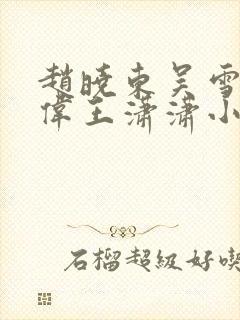 趙曉東吴雪
偉王瀟瀟小
石榴超級好喫